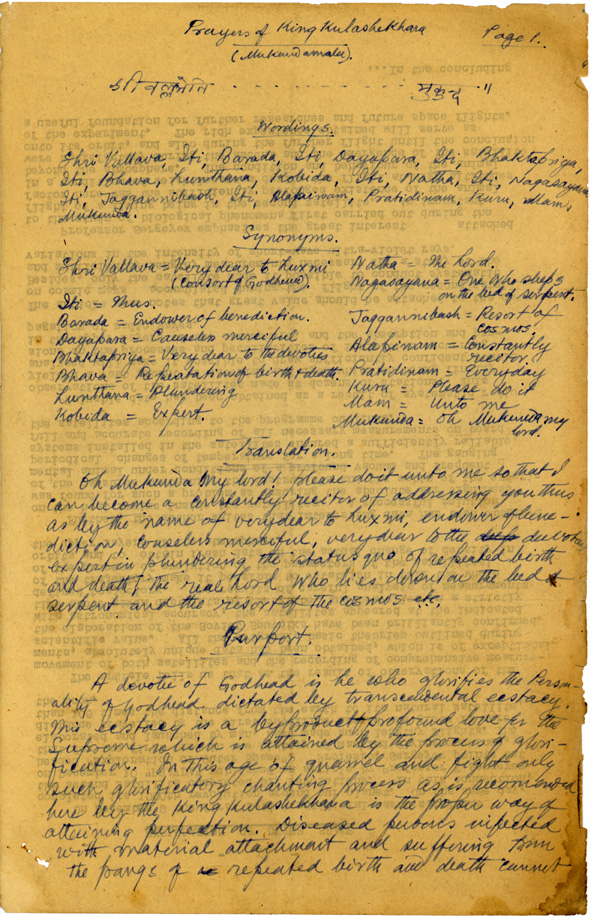 Prayers of King Kulashekhara
Page 1.
(Mukundamala).
श्रीवल्लभेति - - - - - मुकुन्द ॥
Wordings.
Shri Vallava, Iti, Barada, Iti, Dayapara, Iti, Bhaktapriya,
Iti, Bhava, Lunthana, Kobida, Iti, Natha, Iti, Nagasayana
Iti, Jaggannibash, Iti, Alapinam, Pratidinam, Kuru, Mam,
Mukunda.
Synonyms.
Shri Vallava = Very dear to Luxmi
(Consort of Godhead).
Iti = Thus.
Barada = Endower of benediction.
Dayapara = Causeless merciful
Bhaktapriya = Very dear to the devotees
Bhava = Repeatation of birth & death.
Lunthana = Plundering
Kobida = Expert.
Natha = The Lord.
Nagasayana = One Who sleeps
on the bed of serpent.
Jaggannibash = Resort of
cosmos.
Alapinam = Constantly
recitor.
Pratidinam = Everyday
Kuru = Please do it
Mam = Unto me
Mukunda = Oh Mukunda my
lord.
Translation.
Oh Mukunda My lord! please do it unto me so that I
can become a constantly recitor of addressing you thus
as by the name of very dear to Luxmi, endower of bene-
diction, causeless merciful, very dear to the devotee,
expert in plundering the status quo of repeated birth
and death, the real Lord Who lies down on the bed of
serpent and the resort of the cosmos etc.
Purport.
A devotee of Godhead is he who glorifies the Person-
ality of Godhead dictated by transcendental ecstacy.
This ecstacy is a byproduct of profound love for the
Supreme which is attained by the process of glori-
fication. In this age of quarrel and fight only
such glorificatory chanting process as is recomended
here by the King Kulashekhara is the proper way of
attaining perfection. Diseased persons infected
with material attachment and suffering from
the pangs of repeated birth and death cannot